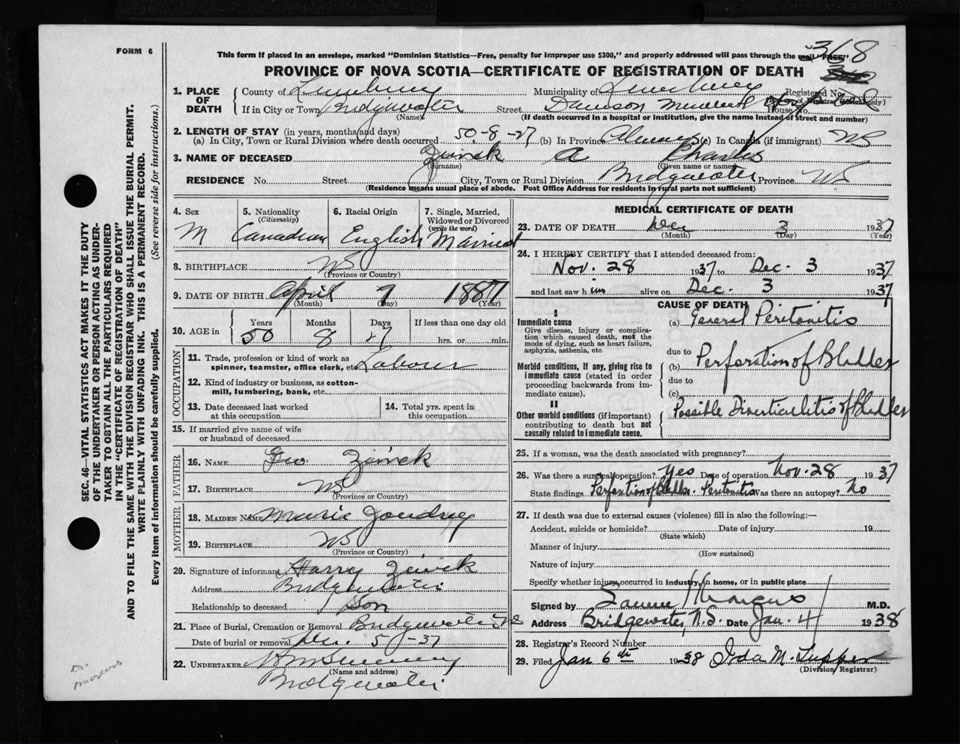 FORM 6
This form if placed in an envelope, marked "Dominion Statistics—Free, penalty for improper use $300," and properly addressed will pass through the mail "FREE"
318
PROVINCE OF NOVA SCOTIA—CERTIFICATE OF REGISTRATION OF DEATH
1. PLACE OF DEATH
County of Lunenburg Municipality of Lunenburg Registered No.
If in City or Town Bridgewater Street Dawson Memorial House No.
(Name) (If death occurred in a hospital or institution, give the name instead of street and number)
2. LENGTH OF STAY (in years, months and days)
(a) In City, Town or Rural Division where death occurred 50-8-27 (b) In Province Always (c) In Canada (if immigrant) NS
3. NAME OF DECEASED Zwick A Charles
(Surname) (Given name or names)
RESIDENCE No. Street City, Town or Rural Division Bridgewater Province NS
(Residence means usual place of abode. Post Office Address for residents in rural parts not sufficient)
4. Sex
M
5. Nationality
(Citizenship)
Canadian
6. Racial Origin
English
7. Single, Married, Widowed or Divorced
(write the word)
Married
8. BIRTHPLACE NS
(Province or Country)
9. DATE OF BIRTH April 7 1887
(Month) (Day) (Year)
10. AGE in Years Months Days If less than one day old
50 8 27 hrs. or min.
OCCUPATION
11. Trade, profession or kind of work as spinner, teamster, office clerk, etc. Labour
12. Kind of industry or business, as cotton-mill, lumbering, bank, etc.
13. Date deceased last worked at this occupation
14. Total yrs. spent in this occupation
15. If married give name of wife or husband of deceased
FATHER
16. NAME Geo Zwick
17. BIRTHPLACE NS
(Province or Country)
MOTHER
18. MAIDEN NAME Marie Joudrey
19. BIRTHPLACE NS
(Province or Country)
20. Signature of informant Harry Zwick
Address Bridgewater
Relationship to deceased Son
21. Place of Burial, Cremation or Removal Bridgewater NS
Date of burial or removal Dec. 5-37
22. UNDERTAKER
(Name and address)
Bridgewater
MEDICAL CERTIFICATE OF DEATH
23. DATE OF DEATH Dec 3 1937
(Month) (Day) (Year)
24. I HEREBY CERTIFY that I attended deceased from:
Nov. 28 1937 to Dec. 3 1937
and last saw him alive on Dec. 3 1937
CAUSE OF DEATH
I
Immediate cause
Give disease, injury or complication which caused death, not the mode of dying, such as heart failure, asphyxia, asthenia, etc.
(a) General Peritonitis
due to
Morbid conditions, if any, giving rise to immediate cause (stated in order proceeding backwards from immediate cause).
(b) Perforation of Bladder
due to
(c)
II
Other morbid conditions (if important) contributing to death but not causally related to immediate cause.
Possible Diverticulitis of Bladder
25. If a woman, was the death associated with pregnancy?
26. Was there a surgical operation? Yes Date of operation Nov. 28 1937
State findings Perforation of Bladder. Peritonitis Was there an autopsy? No
27. If death was due to external causes (violence) fill in also the following:—
Accident, suicide or homicide? Date of injury 19
(State which)
Manner of injury
(How sustained)
Nature of injury
Specify whether injury occurred in industry, in home, or in public place
Signed by Marcus M.D.
Address Bridgewater, N.S. Date Jan. 4 1938
28. Registrar's Record Number
29. Filed Jan 6th 1938 Ida M. Tupper
(Division Registrar)
SEC. 46—VITAL STATISTICS ACT MAKES IT THE DUTY OF THE UNDERTAKER OR PERSON ACTING AS UNDERTAKER TO OBTAIN ALL THE PARTICULARS REQUIRED IN THE "CERTIFICATE OF REGISTRATION OF DEATH" AND TO FILE THE SAME WITH THE DIVISION REGISTRAR WHO SHALL ISSUE THE BURIAL PERMIT.
WRITE PLAINLY WITH UNFADING INK. THIS IS A PERMANENT RECORD.
Every item of information should be carefully supplied. (See reverse side for instructions.)
Dr. Marcus